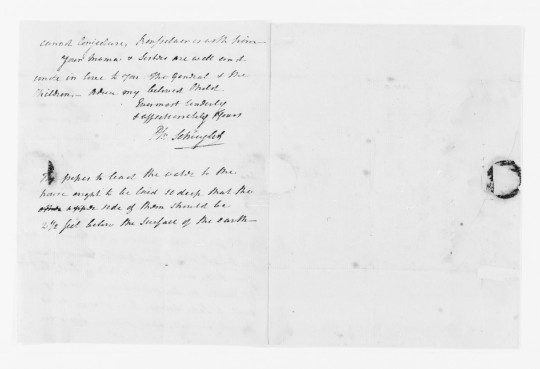 cannot Conjecture, Rensselaer is with him
Your Mama & Sisters are well and
unite in love to you The General & the
Children,. Adieu my beloved Child
Ever most tenderly
& affectionately Yours
Ph: Schuyler
The pipes to lead the water to the
house ought to be laid so deep, that the
upper side of them should be
2½ feet below the surface of the earth